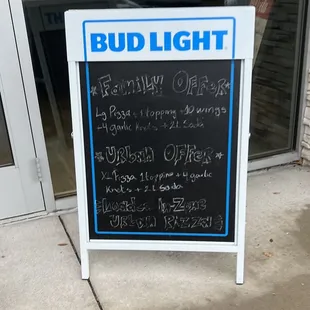 BUD LIGHT
Family Offer
Lg Pizza + 1 topping + 10 wings
+ 4 garlic knots + 2L Soda
Urban Offer
XL Pizza 1 topping + 4 garlic
knots + 2L Soda
In-Zone
Urban Pizza